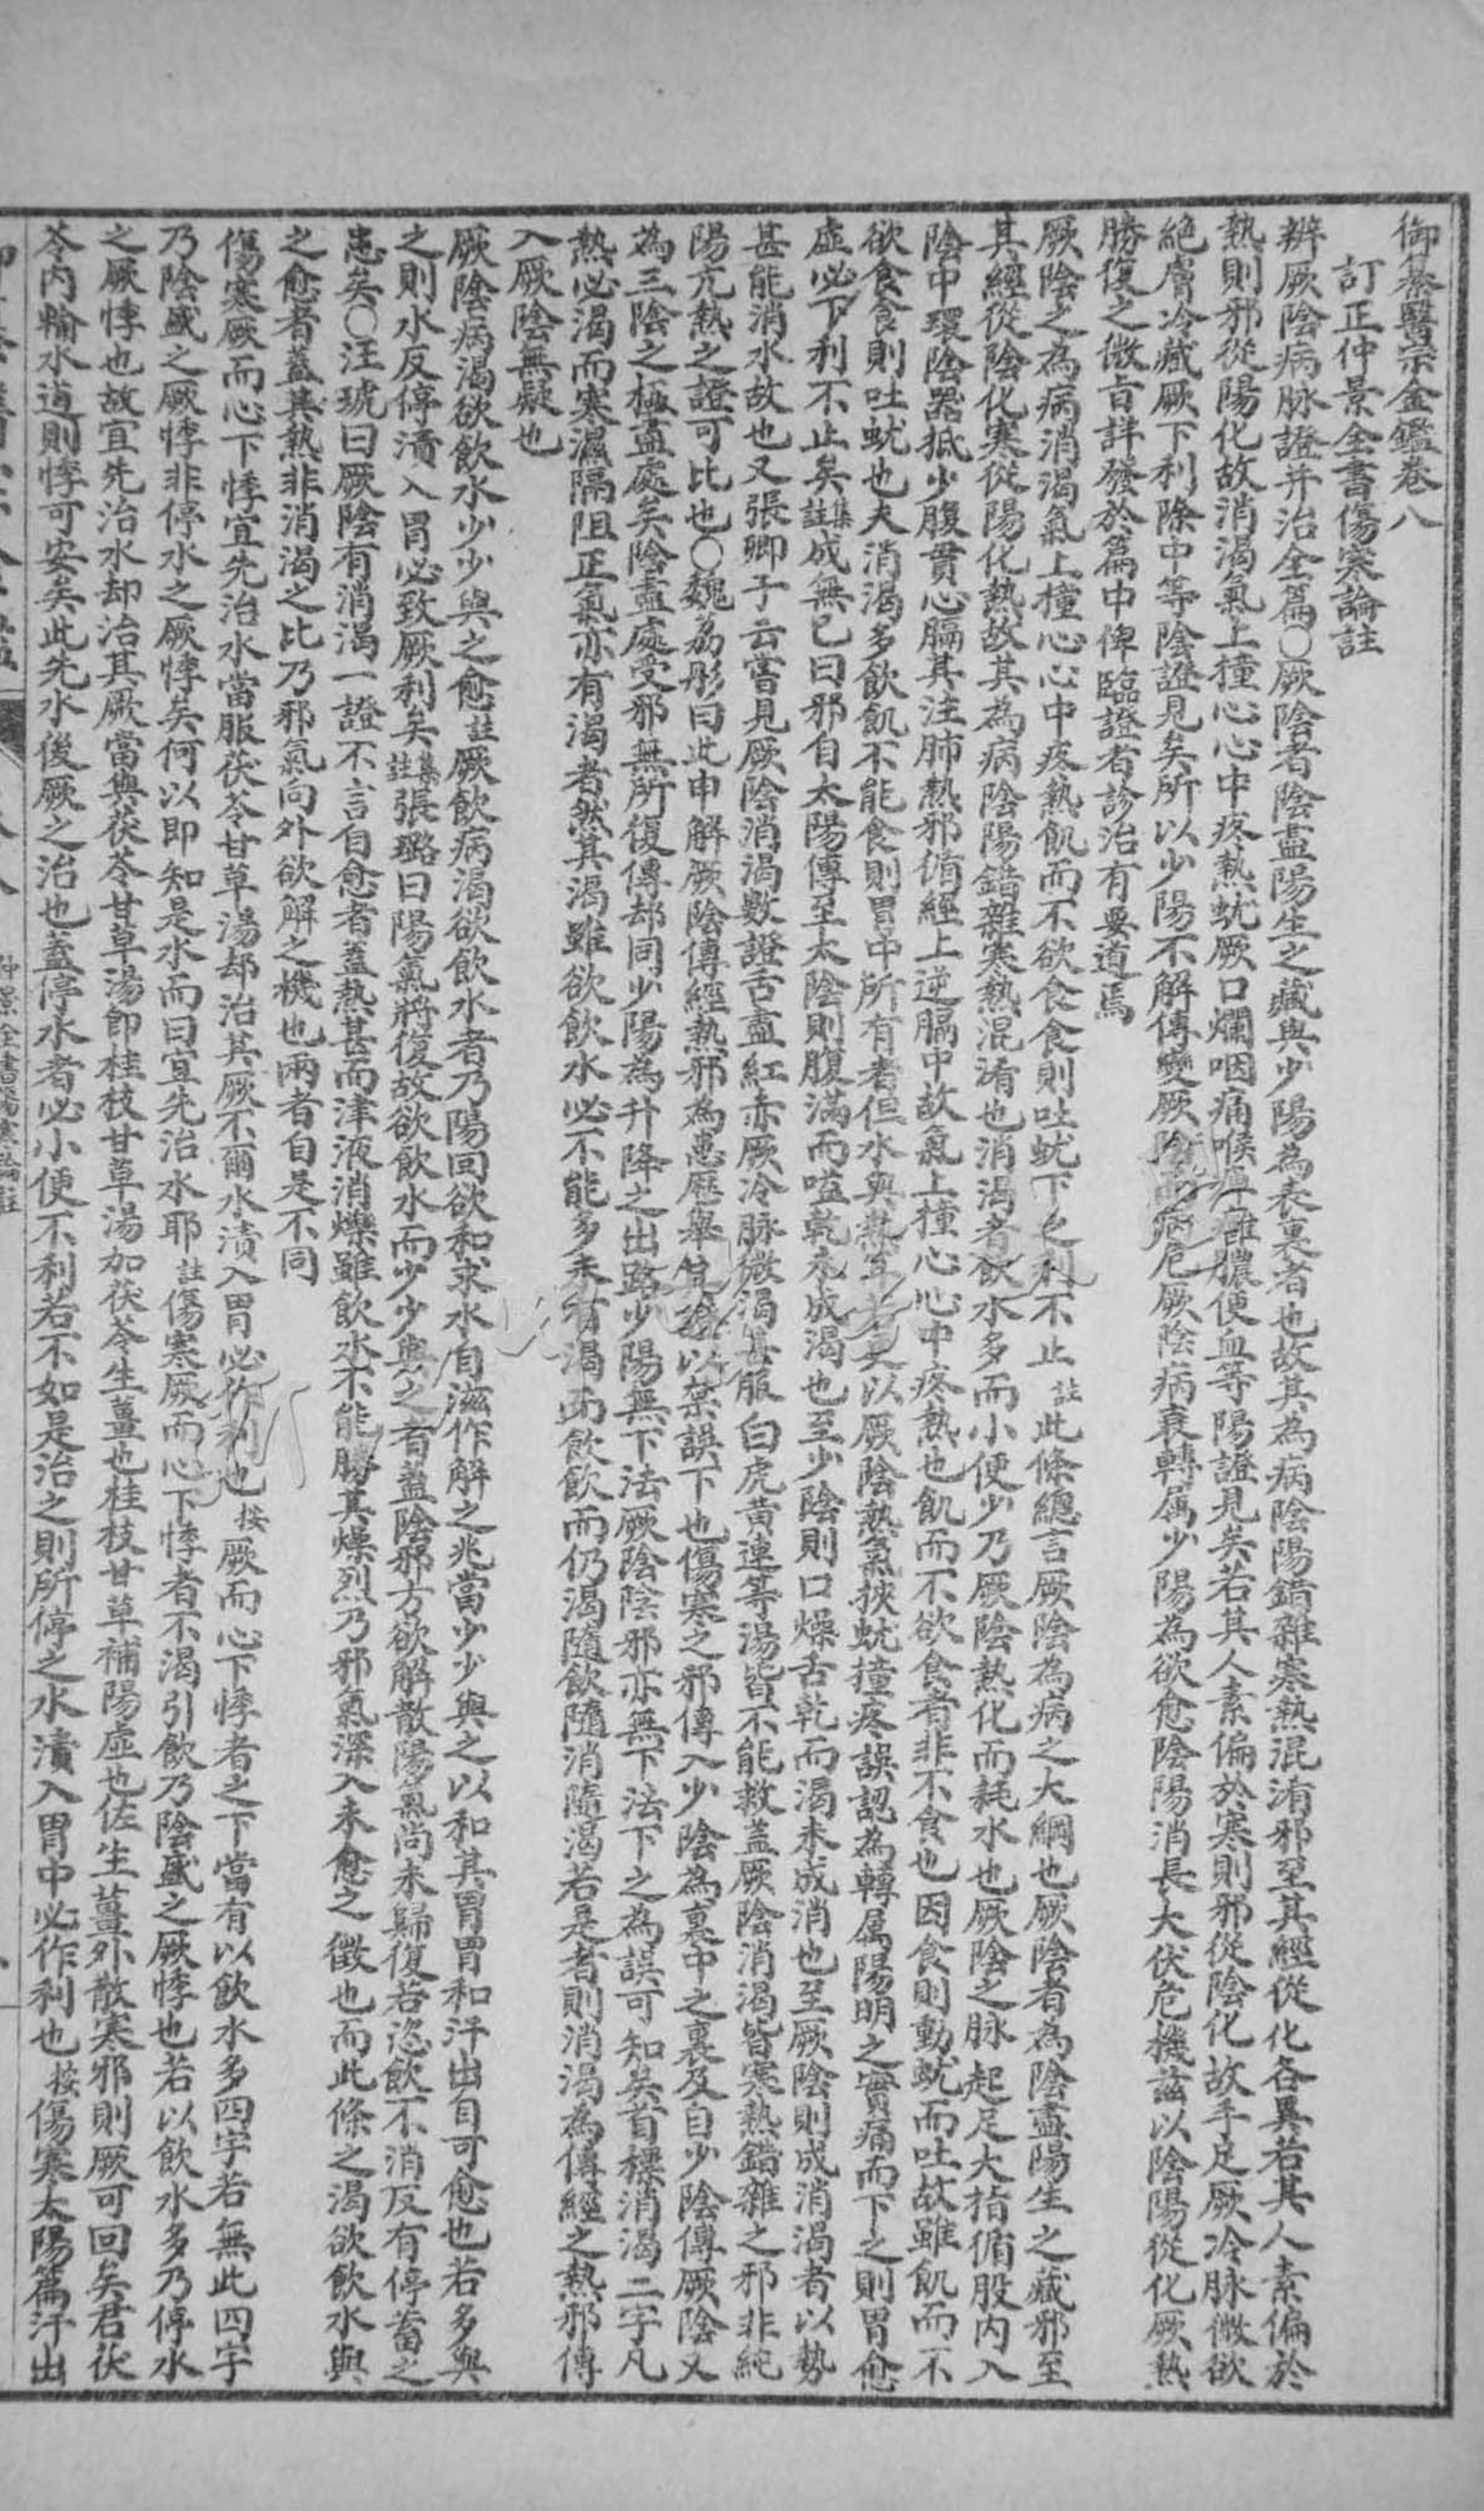 御纂醫宗金鑑卷八
訂正仲景全書傷寒論註
辨厥陰病脉證并治全篇○厥陰者陰盡陽生之藏與少陽為表裏者也故其為病陰陽錯雜寒熱混淆邪至其經從化各異若其人素偏於
熱則邪從陽化故消渴氣上撞心心中疼熱蚘厥口爛咽痛喉痺癰膿便血等陽證見矣若其人素偏於寒則邪從陰化故手足厥冷脉微欲
絕膚冷藏厥下利除中等陰證見矣所以少陽不解傳變厥陰而病危厥陰病衰轉属少陽為欲愈陰陽消長大伏危機茲以陰陽從化厥熱
勝復之微旨詳發於篇中俾臨證者診治有要道焉
厥陰之為病消渴氣上撞心心中疼熱飢而不欲食食則吐蚘下之利不止註此條總言厥陰為病之大綱也厥陰者為陰盡陽生之藏邪至
其經從陰化寒從陽化熱故其為病陰陽錯雜寒熱混淆也消渴者飲水多而小便少乃厥陰熱化而耗水也厥陰之脉起足大指循股内入
陰中環陰器抵少腹貫心膈其注肺熱邪循經上逆膈中故氣上撞心心中疼熱也飢而不欲食者非不食也因食則動蚘而吐故雖飢而不
欲食食則吐蚘也夫消渴多飲飢不能食則胃中所有者但水與熱耳若更以厥陰熱氣挾蚘撞疼誤認為轉属陽明之實痛而下之則胃愈
虛必下利不止矣集註成無已曰邪自太陽傳至太陰則腹滿而嗌乾未成渴也至少陰則口燥舌乾而渴未成消也至厥陰則成消渴者以勢
甚能消水故也又張卿子云嘗見厥陰消渴數證舌盡紅赤厥冷脉微渴甚服白虎黃連等湯皆不能救蓋厥陰消渴皆寒熱錯雜之邪非純
陽亢熱之證可比也○魏荔彤曰此申解厥陰傳經熱邪為患歷舉其證以禁誤下也傷寒之邪傳入少陰為裏中之裏及自少陰傳厥陰又
為三陰之極盡處矣陰盡處受邪無所復傳却同少陽為升降之出路少陽無下法厥陰陰邪亦無下法下之為誤可知矣首標消渴二字凡
熱必渴而寒濕隔阻正氣亦有渴者然其渴雖欲飲水必不能多未有渴而飲飲而仍渴隨飲隨消隨渴若是者則消渴為傳經之熱邪傳
入厥陰無疑也
厥陰病渴欲飲水少少與之愈註厥飲病渴欲飲水者乃陽回欲和求水自滋作解之兆當少少與之以和其胃胃和汗出自可愈也若多與
之則水反停漬入胃必致厥利矣集註張璐曰陽氣將復故欲飲水而少少與之者蓋陰邪方欲解散陽氣尚未歸復若恣飲不消反有停蓄之
患矣○汪琥曰厥陰有消渴一證不言自愈者蓋熱甚而津液消爍雖飲水不能勝其燥烈乃邪氣深入未愈之徵也而此條之渴欲飲水與
之愈者蓋其熱非消渴之比乃邪氣向外欲解之機也兩者自是不同
傷寒厥而心下悸宜先治水當服茯苓甘草湯却治其厥不爾水漬入胃必作利也按厥而心下悸者之下當有以飲水多四字若無此四字
乃陰盛之厥悸非停水之厥悸矣何以即知是水而曰宜先治水耶註傷寒厥而心下悸者不渴引飲乃陰盛之厥悸也若以飲水多乃停水
之厥悸也故宜先治水却治其厥當與茯苓甘草湯即桂枝甘草湯加茯苓生薑也桂枝甘草補陽虛也佐生薑外散寒邪則厥可回矣君茯
苓内輸水道則悸可安矣此先水後厥之治也蓋停水者必小便不利若不如是治之則所停之水漬入胃中必作利也按傷寒太陽篇汗出